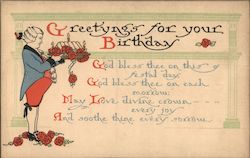 Greetyngs for your
Birthday
God bless thee on this y
festal day
God bless thee on each
morrow:
May Love divine crown - - - -
every joy
And soothe thine every sorrow.